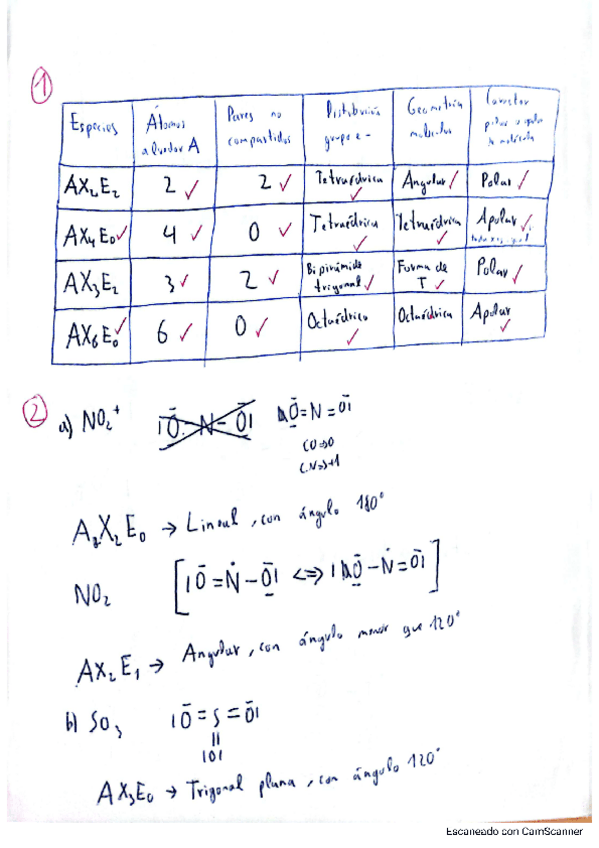 1
Especies Átomos alrededor A Pares no compartidos Distribución grupo e- Geometría molecular Carácter polar o apolar de molécula
AX2E2 2 ✓ 2 ✓ Tetraédrica ✓ Angular ✓ Polar ✓
AX4E0 ✓ 4 ✓ 0 ✓ Tetraédrica ✓ Tetraédrica ✓ Apolar ✓
AX3E2 3 ✓ 2 ✓ Bipirámide trigonal ✓ Forma de T ✓ Polar ✓
AX6E0 ✓ 6 ✓ 0 ✓ Octaédrica ✓ Octaédrica ✓ Apolar ✓
2
a) NO2+ |Ō-N-Ō| Ō=N=Ō|
CO=>0
CN=>+1
A X2 E0 → Lineal, con ángulo 180°
NO2 [|Ō=Ṅ-Ō| <=> |Ō-Ṅ=Ō|]
AX2E1 → Angular, con ángulo menor que 120°
b) SO3 |Ō=S=Ō|
||
|O|
AX3E0 → Trigonal plana, con ángulo 120°
Escaneado con CamScanner